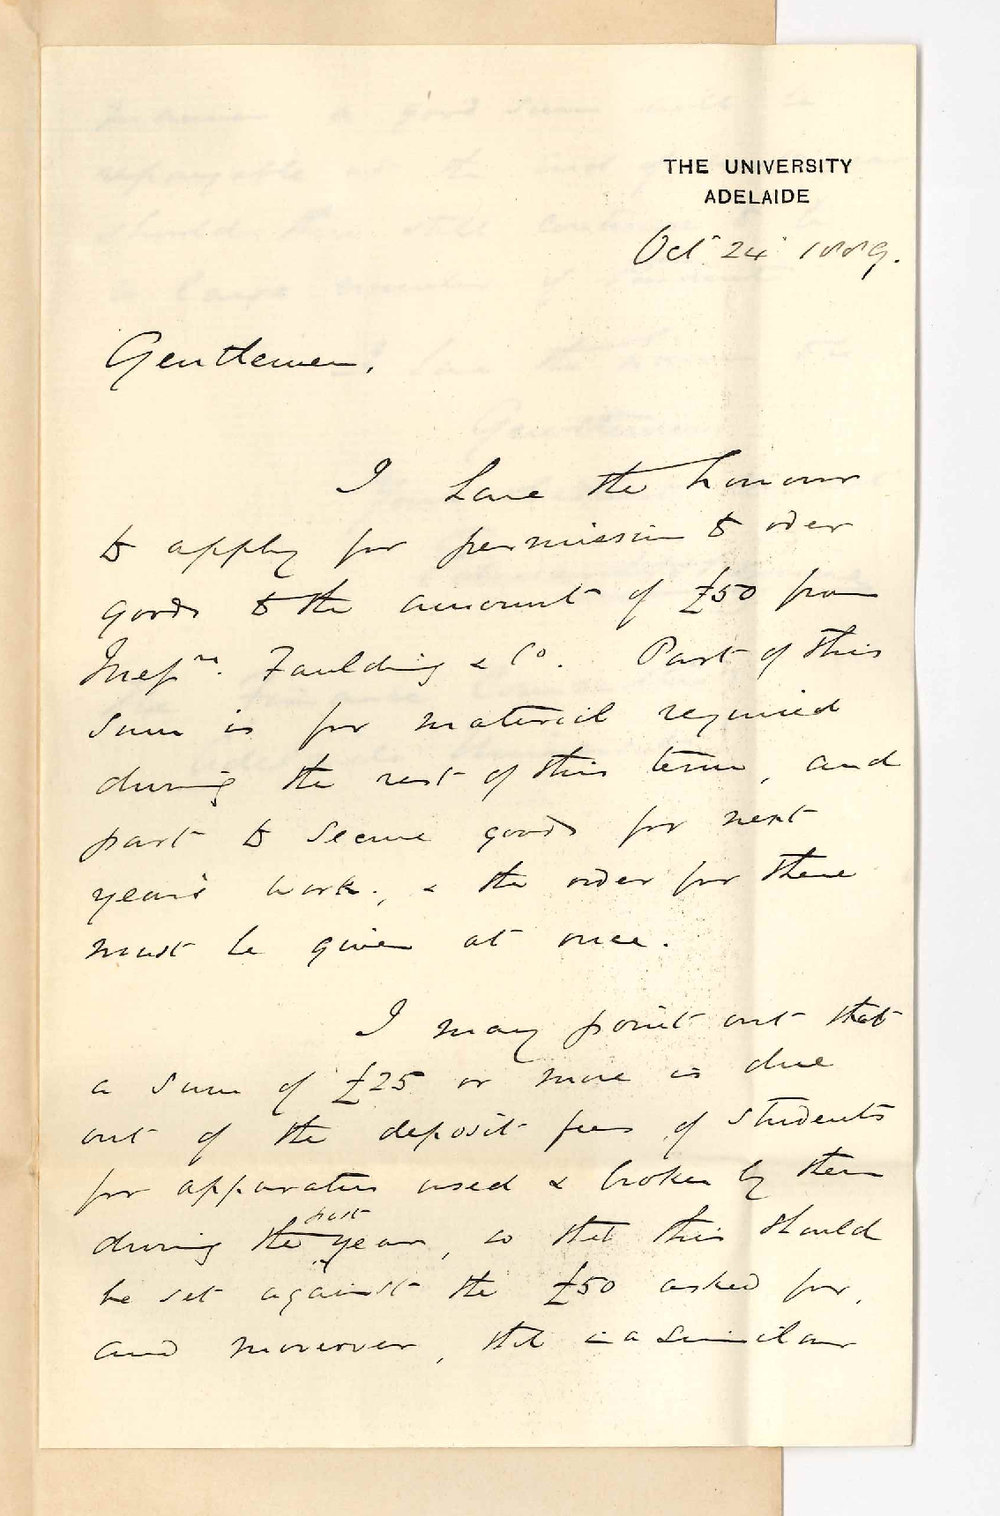 THE UNIVERSITY
ADELAIDE
Oct 24 1889.
Gentlemen,
I have the honour
to apply for permission to order
goods to the amount of £50 from
Messrs. Faulding & Co. Part of this
sum is for material required
during the rest of this term, and
part to secure goods for next
year's work, & the order for these
must be given at once.
I may point out that
a sum of £25 or more is due
out of the deposit fees of students
for apparatus used & broken by them
during the past year, so that this should
be set against the £50 asked for,
and moreover, that in a similar